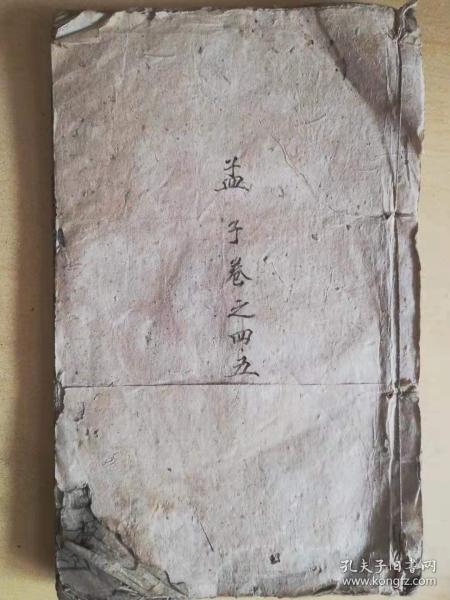 孟子卷之四五
孔夫子旧书网
www.kongfz.com